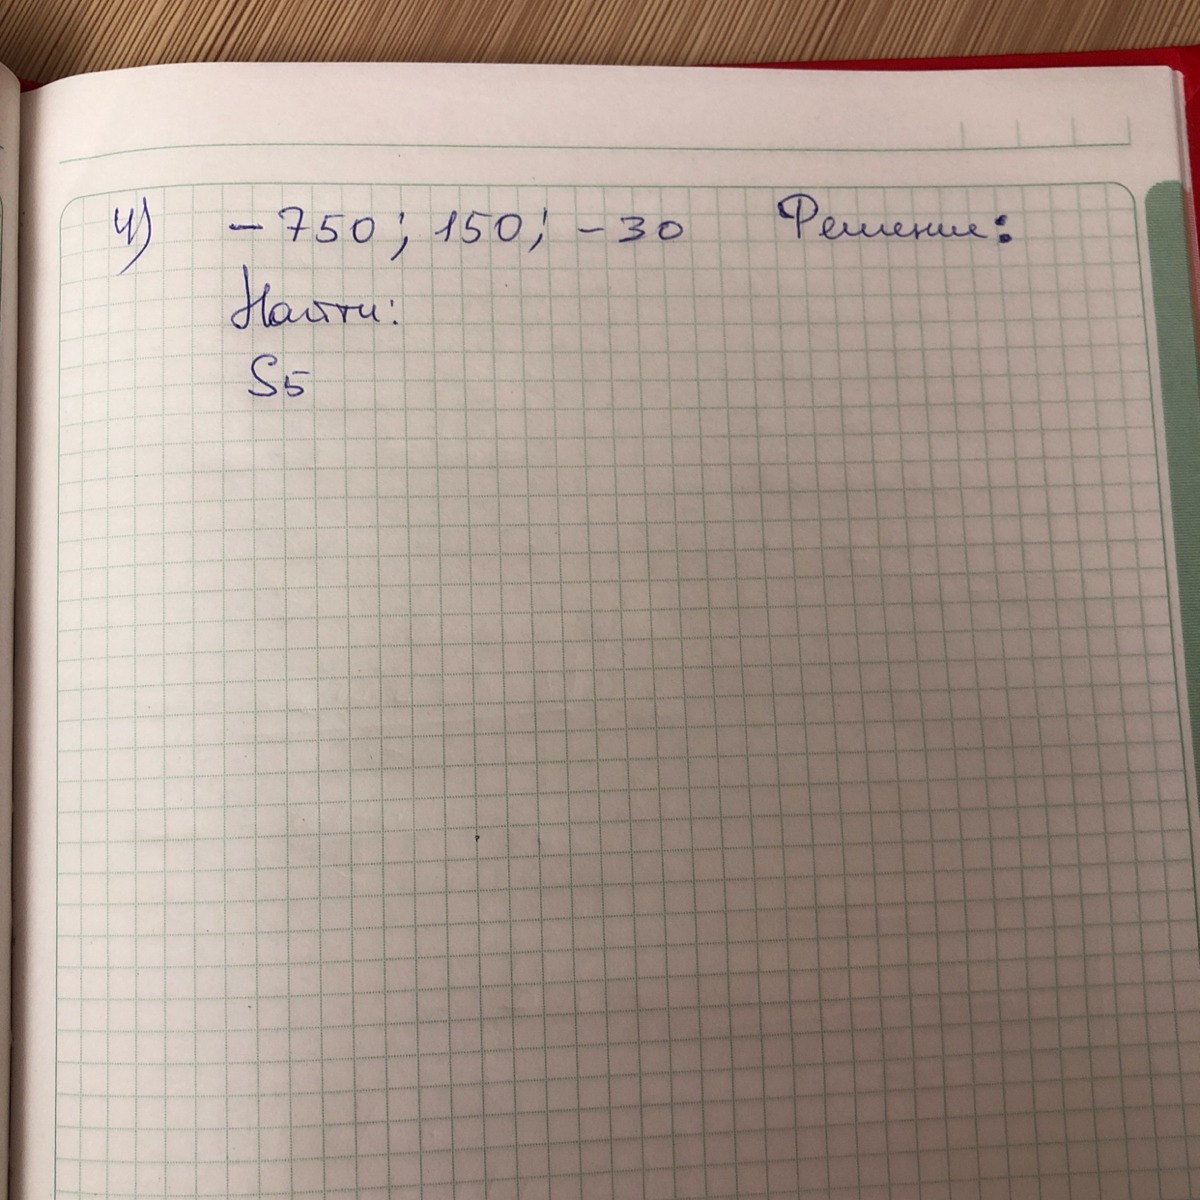 4) - 750; 150; - 30 Решение:
Найти:
S5